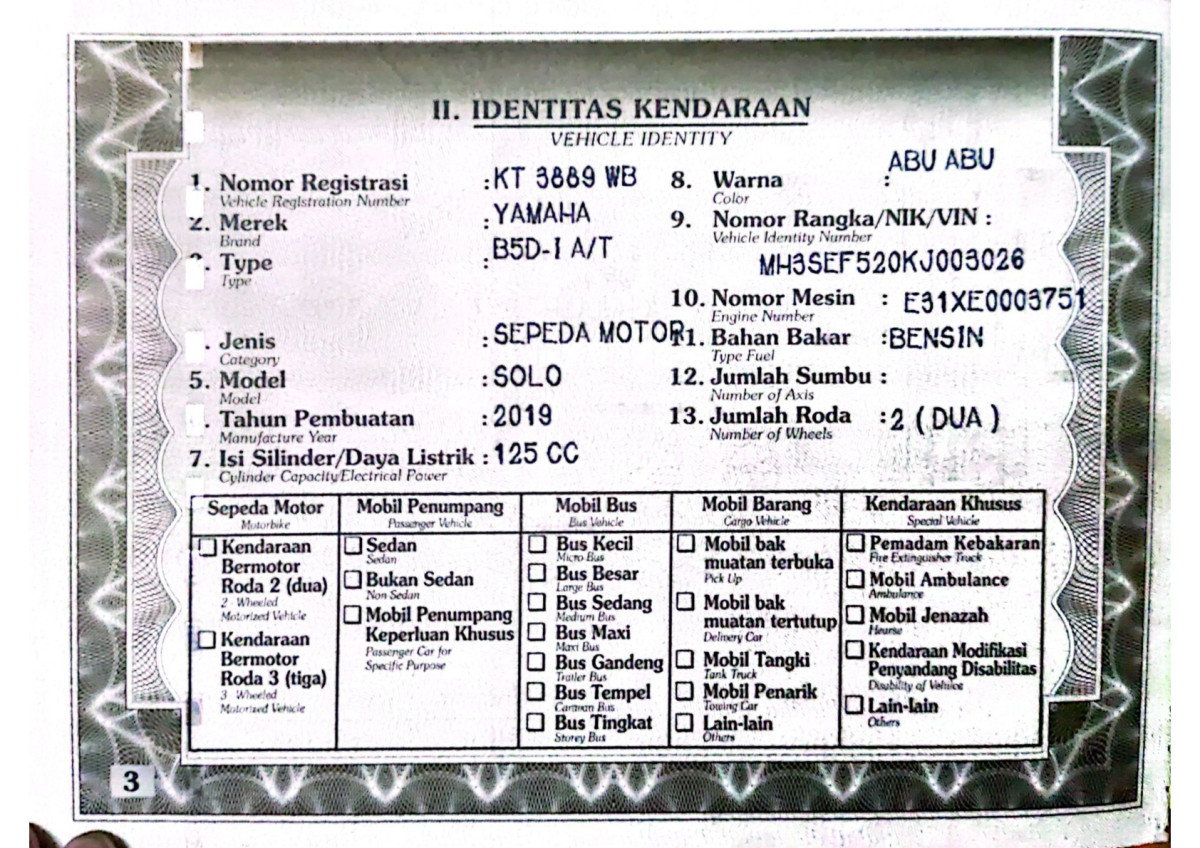 II. IDENTITAS KENDARAAN
VEHICLE IDENTITY
1. Nomor Registrasi : KT 3889 WB
Vehicle Registration Number
2. Merek : YAMAHA
Brand
Type : B5D-I A/T
Type
. Jenis : SEPEDA MOTOR
Category
5. Model : SOLO
Model
. Tahun Pembuatan : 2019
Manufacture Year
7. Isi Silinder/Daya Listrik : 125 CC
Cylinder Capacity/Electrical Power
8. Warna : ABU ABU
Color
9. Nomor Rangka/NIK/VIN :
Vehicle Identity Number
MH3SEF520KJ003026
10. Nomor Mesin : E31XE0003751
Engine Number
11. Bahan Bakar : BENSIN
Type Fuel
12. Jumlah Sumbu :
Number of Axis
13. Jumlah Roda : 2 ( DUA )
Number of Wheels
Sepeda Motor
Motorbike
Kendaraan
Bermotor
Roda 2 (dua)
2 - Wheeled
Motorized Vehicle
Kendaraan
Bermotor
Roda 3 (tiga)
3 Wheeled
Motorized Vehicle
Mobil Penumpang
Passenger Vehicle
Sedan
Sedan
Bukan Sedan
Non Sedan
Mobil Penumpang
Keperluan Khusus
Passenger Car for
Specific Purpose
Mobil Bus
Bus Vehicle
Bus Kecil
Micro Bus
Bus Besar
Large Bus
Bus Sedang
Medium Bus
Bus Maxi
Maxi Bus
Bus Gandeng
Trailer Bus
Bus Tempel
Caravan Bus
Bus Tingkat
Storey Bus
Mobil Barang
Cargo Vehicle
Mobil bak
muatan terbuka
Pick Up
Mobil bak
muatan tertutup
Delivery Car
Mobil Tangki
Tank Truck
Mobil Penarik
Towing Car
Lain-lain
Others
Kendaraan Khusus
Special Vehicle
Pemadam Kebakaran
Fire Extinguisher Truck
Mobil Ambulance
Ambulance
Mobil Jenazah
Hearse
Kendaraan Modifikasi
Penyandang Disabilitas
Disability of Vehicle
Lain-lain
Others
3